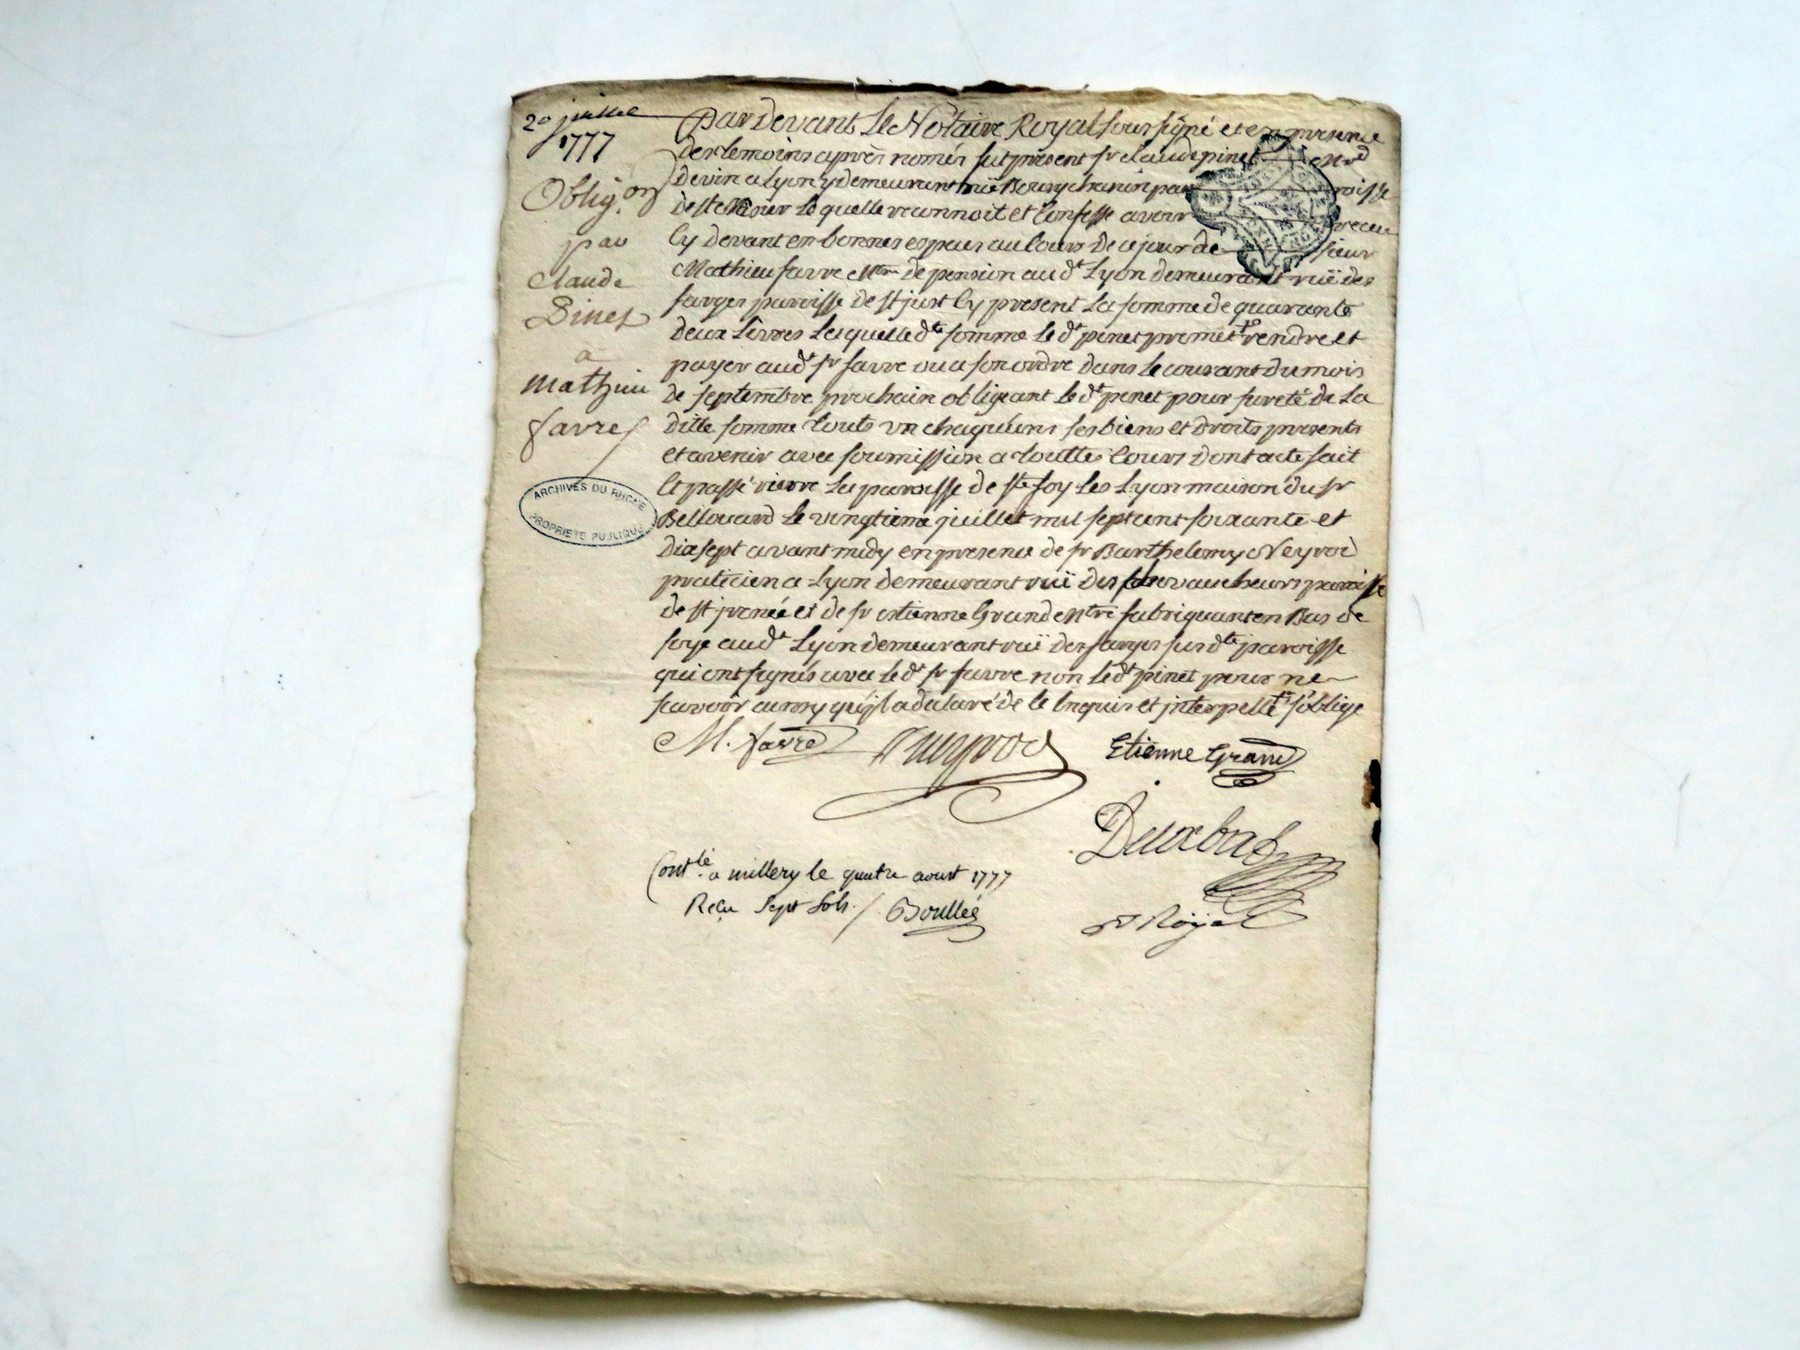 20 juillet
1777
Oblig.on
par
Claude
Pinet
a
Mathieu
favre
ARCHIVES DU RHONE
PROPRIETE PUBLIQUE
Par Devant Le Notaire Royal soussigné et en presence
des temoins après només fut present sr claude pinet
de vin a Lyon y demeurant ruë Bourgchanin paroisse
de lequelle reconnoit et Confesse avoir receu
Cy devant en bonnes espèces au Cours de ce jour de sieur
Mathieu favre de pension aud.t Lyon demeurant ruë des
farges paroisse de st just Cy present La somme de quarante
deux Livres Lesquelle d.te somme le d.t pinet promet rendre et
payer aud.t sr favre ou a son ordre dans le courant du mois
de septembre prochain obligeant le d.t pinet pour sureté de La
ditte somme touts un chaquéuns ses biens et droits presents
et avenir avec soumission a touttes Cours dont acte fait
et passé rierre La paroisse de ste foy Les Lyon maison du sr
Bellouard Le vingtieme juillet mil sept cent soixante et
dix sept avant midy en presence de sr Barthelemy Neyrod
praticien a Lyon demeurant ruë des paroisse
de st jrenée et de sr etienne Grand mtre fabriquant en Bas de
soye aud.t Lyon demeurant ruë des farges susd.te paroisse
qui ont signés avec led.t sr favre non led.t pinet pour ne
scavoir ainsy qu'jl a declaré de ce Enquis et jnterpellé s'oblige
M. favre Neyrod Etienne Grand
Contlé a millery le quatre aoust 1777
Reçu sept sols / Boullée
Royal